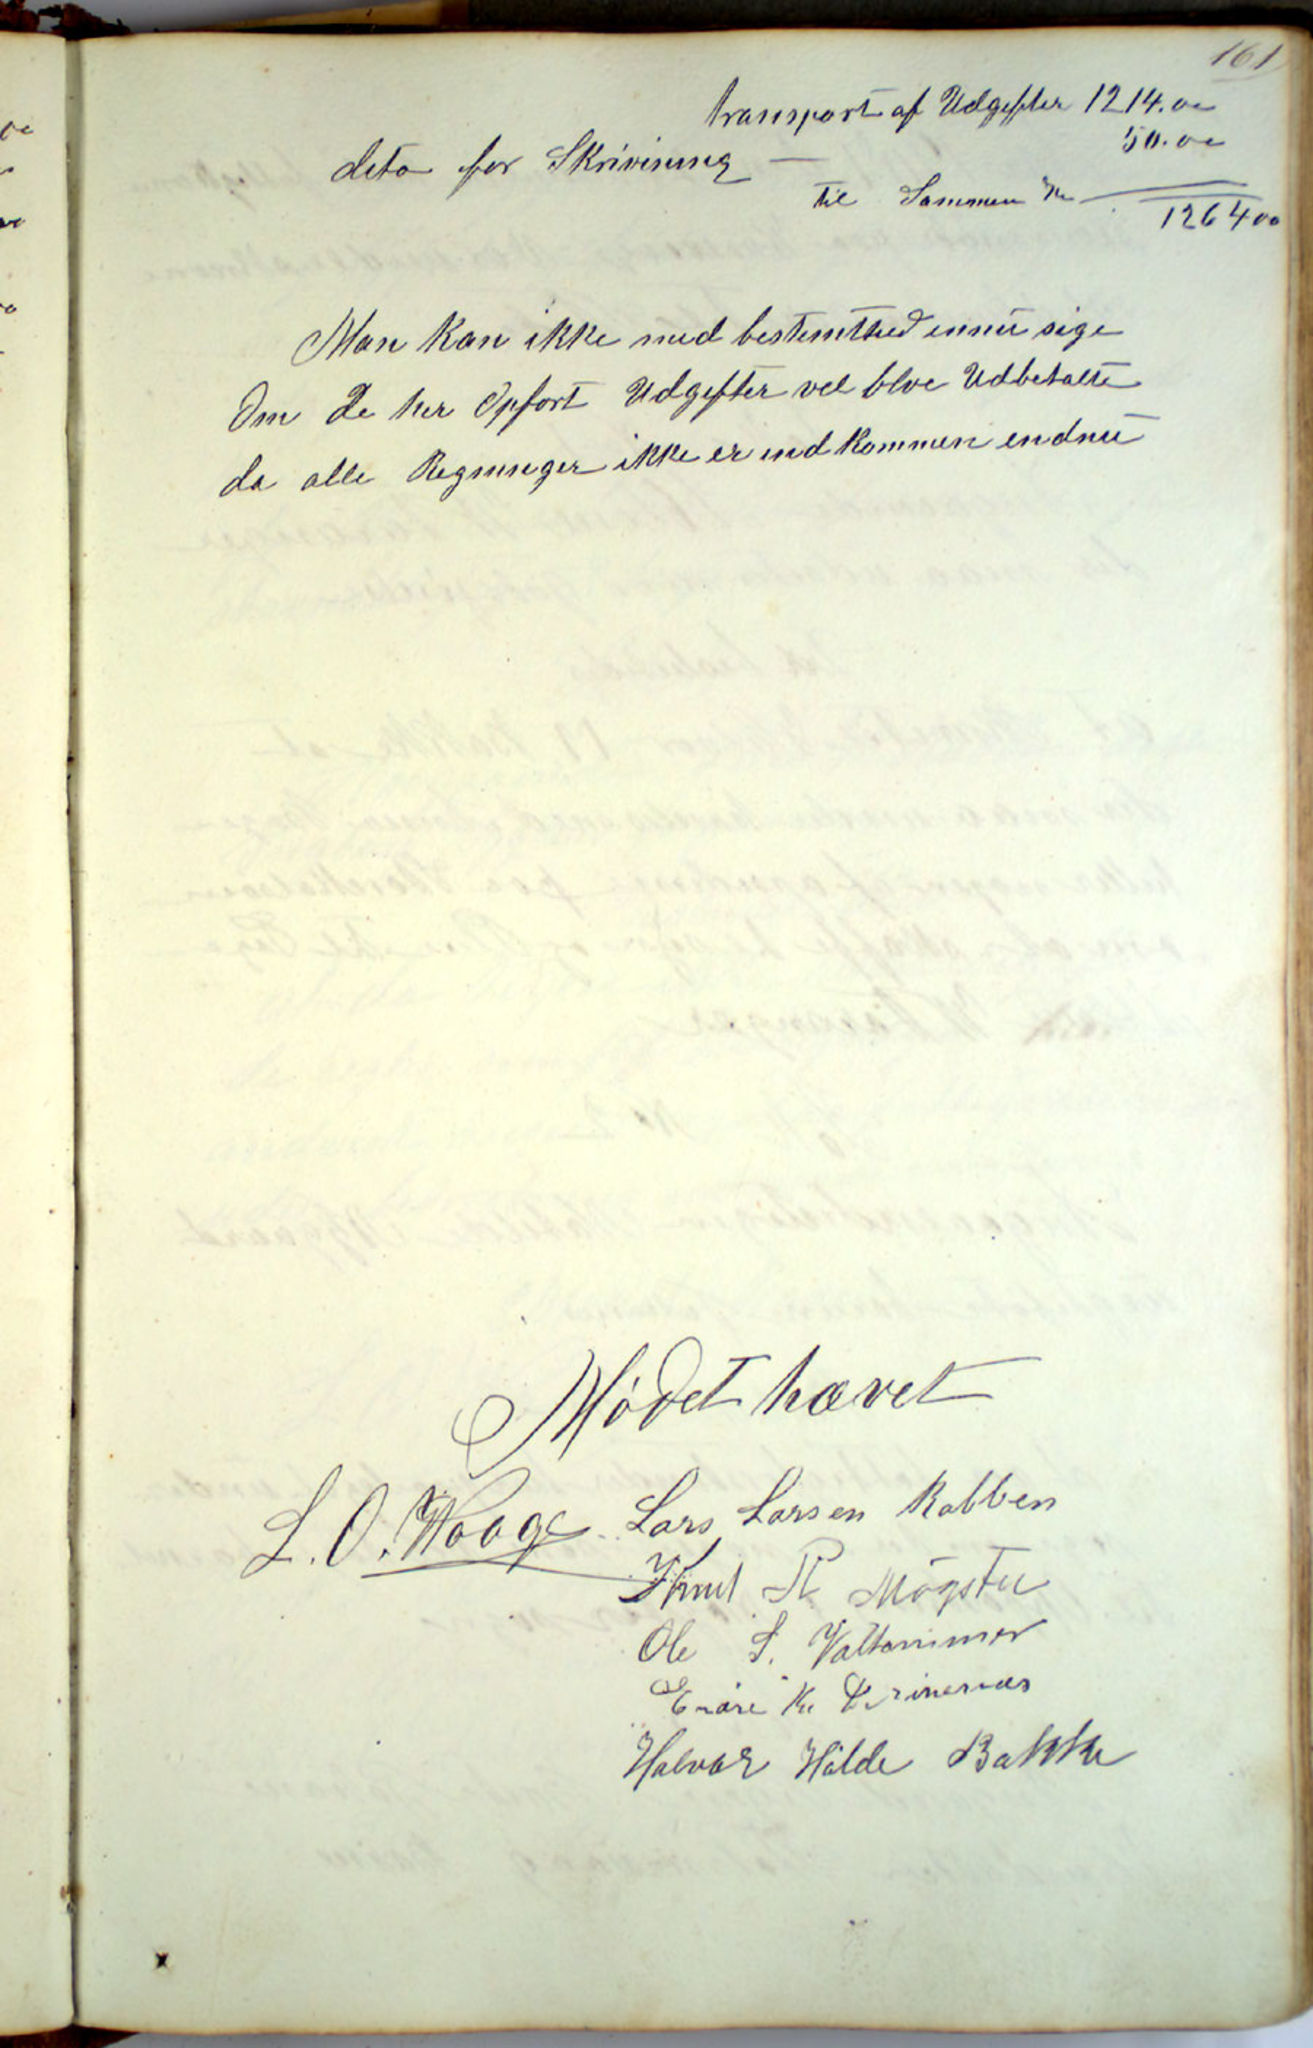 161
transport af Udgefter 1214.00
deto for Skrivning — 50.00
til Sammen Kr 1264 00
Man kan ikke med bestemthed ennu sige
Om de her Opfort Udgefter vel blve Udbetalte
da alle Regninger ikke er indkommen endnu
Mødet hævet
L. O. Waage
Lars Larsen Rabben
Knut R Møgster
Ole S. Valtammer
K.
Halvar Hilde Bakke